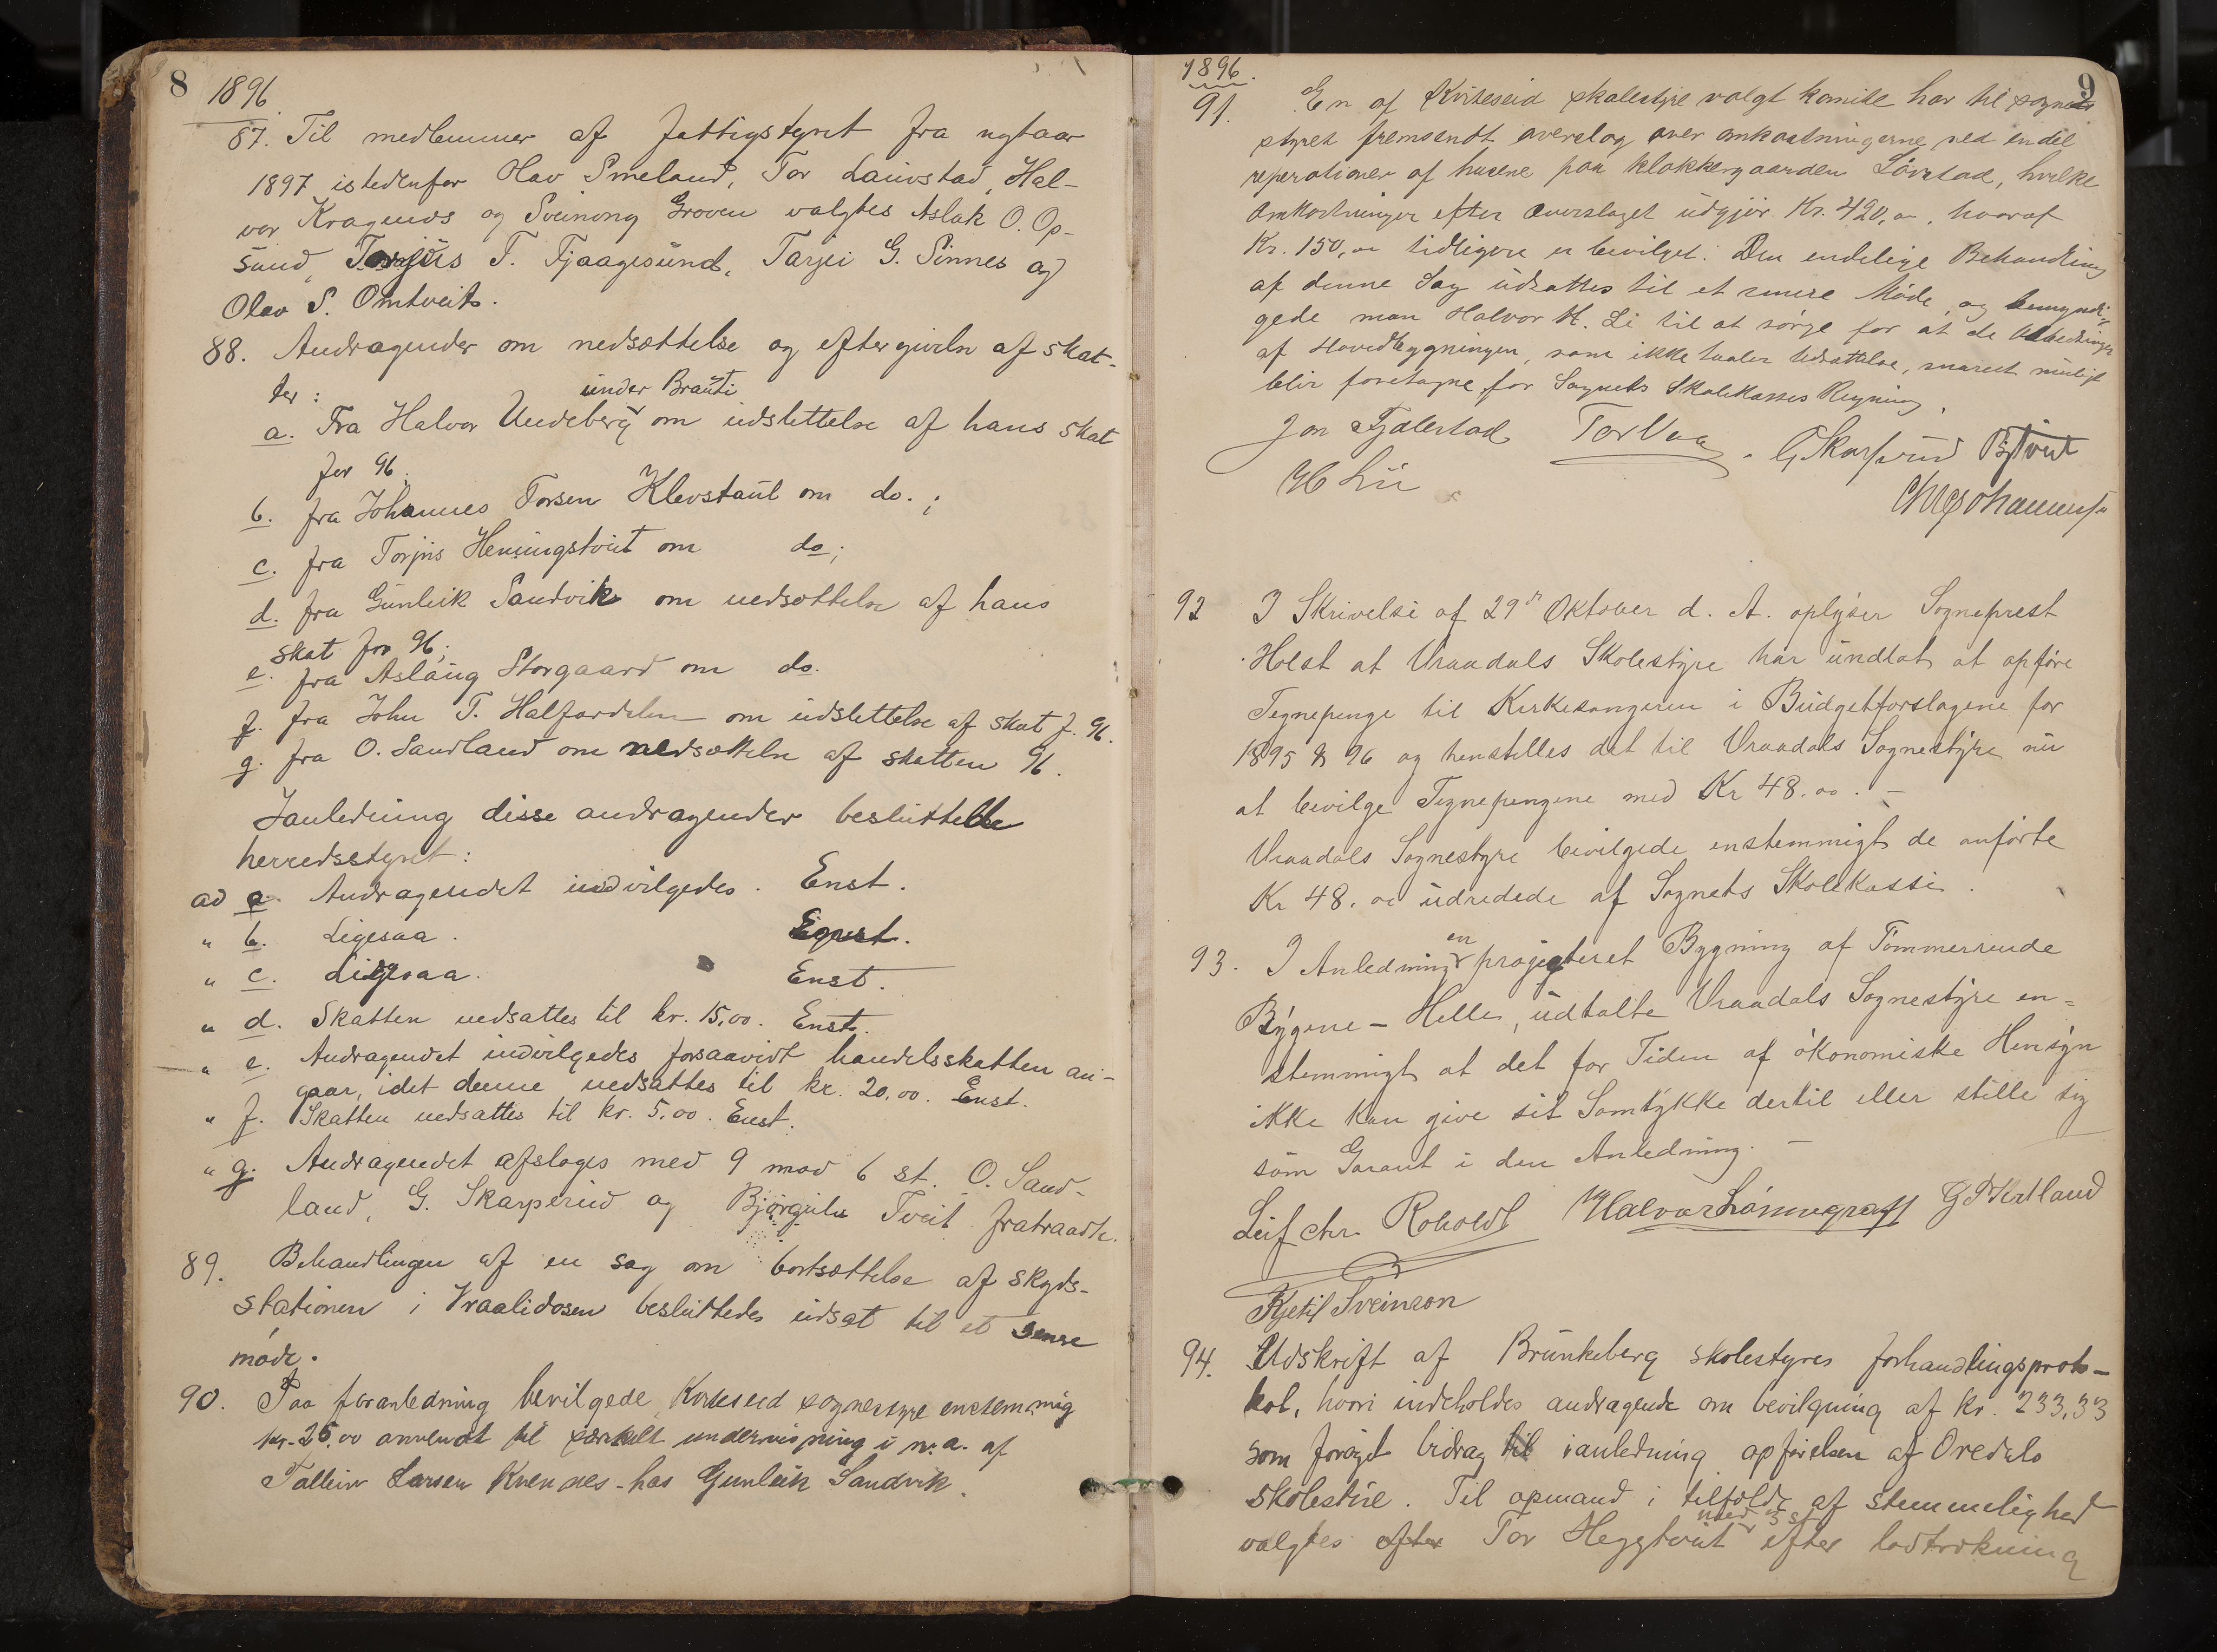 8
1896
87. Til medlemmer af fattigstyret fra nytaar
1897 istedenfor Olav Smeland, Tor Lauvstad, Hal-
vor Kragenes og Sveinong Groven valgtes Aslak O. Op-
sund, Torjus T. Fjaagesund, Tarjei G. Sinnes og
Olav S. Omtveit.
88. Andragender om nedsættelse og eftergivelse af skat-
ter:
under Brauti
a. Fra Halvor Undeberg om udslettelse af hans skat
for 96.
b. fra Johannes Torsen Klevstaul om do.;
c. fra Torjus Hemingstveit om do;
d. fra Gunleik Sandvik om nedsættelse af hans
skat for 96;
e. fra Aslaug Storgaard om do.
f. fra John T. Halfardalen om udslettelse af skat f. 96.
g. fra O. Sandland om nedsættelse af skatten 96.
Ianledning disse andragender besluttede
herredsstyret:
ad a. Andragendet indvilgedes. Enst.
" b. Ligesaa. Enst.
" c. Ligesaa. Enst.
" d. Skatten nedsattes til kr. 15,00. Enst.
" e. Andragendet indvilgedes forsaavidt handelsskatten an-
gaar, idet denne nedsattes til kr. 20,00. Enst.
" f. Skatten nedsattes til kr. 5,00. Enst.
" g. Andragendet afsloges med 9 mod 6 st. O. Sand-
land, G. Skarperud og Bjørgulv Tveit fratraadte.
89. Behandlingen af en sag om bortsættelse af skyds-
stationen i Vraalidosen besluttedes udsat til et senere
møde.
90. Paa foranledning bevilgede Kviteseid sognestyre enstemmig
kr. 25,00 anvendt til særskilt undervisning i n.a. af
Tallein Larsen Kvennes hos Gunleik Sandvik.
9
1896.
91. En af Kviteseid skolestyre valgt komite har til sogne-
styret fremsendt overslag over omkostningerne ved endel
reperationer af husene paa klokkergaarden Lövstad, hvilke
Omkostninger efter Overslaget udgjör Kr. 420,00, hvoraf
Kr. 150,00 tidligere er bevilget. Den endelige Behandling
af denne Sag udsattes til et senere Möde, og bemyndi-
gede man Halvor H. Li til at sörge for at de Udbedringer
af Hovedbygningen, som ikke taaler Udsættelse, snarest muligt
blir foretagne for Sognets Skolekasses Regning.
Jon Fjalestad Tor Vaa G Skarperud B Tveit
H Lii
Chr Johannessen
92 I Skrivelse af 29de Oktober d. A. oplyser Sogneprest
Holst at Vraadals Skolestyre har undlat at opföre
Tegnepenge til Kirkesangeren i Budgetforslagene for
1895 & 96 og henstilles det til Vraadals Sognestyre nu
at bevilge Tegnepengene med Kr 48.00. –
Vraadals Sognestyre bevilgede enstemmigt de anförte
Kr 48.00 udredede af Sognets Skolekasse.
en
93. I Anledning projegteret Bygning af Tömmerrende
Bygene – Helle, udtalte Vraadals Sognestyre en=
stemmigt at det for Tiden af ökonomiske Hensyn
ikke kan give sit Samtykke dertil eller stille sig
som Garant i den Anledning. –
Leif Chr. Roholdt Halvor Lönnegraff G P Kirtland
Kjetil Sveinson
94. Udskrift af Brunkeberg skolestyres forhandlingsproto-
kol, hvori indeholdes andragende om bevilgning af kr. 233,33
som forøget bidrag til ianledning opførelsen af Øredals
skolestue. Til opmand i tilfælde af stemmelighed
med 3 st
valgtes efter Tor Heggtveit efter lodtrækning